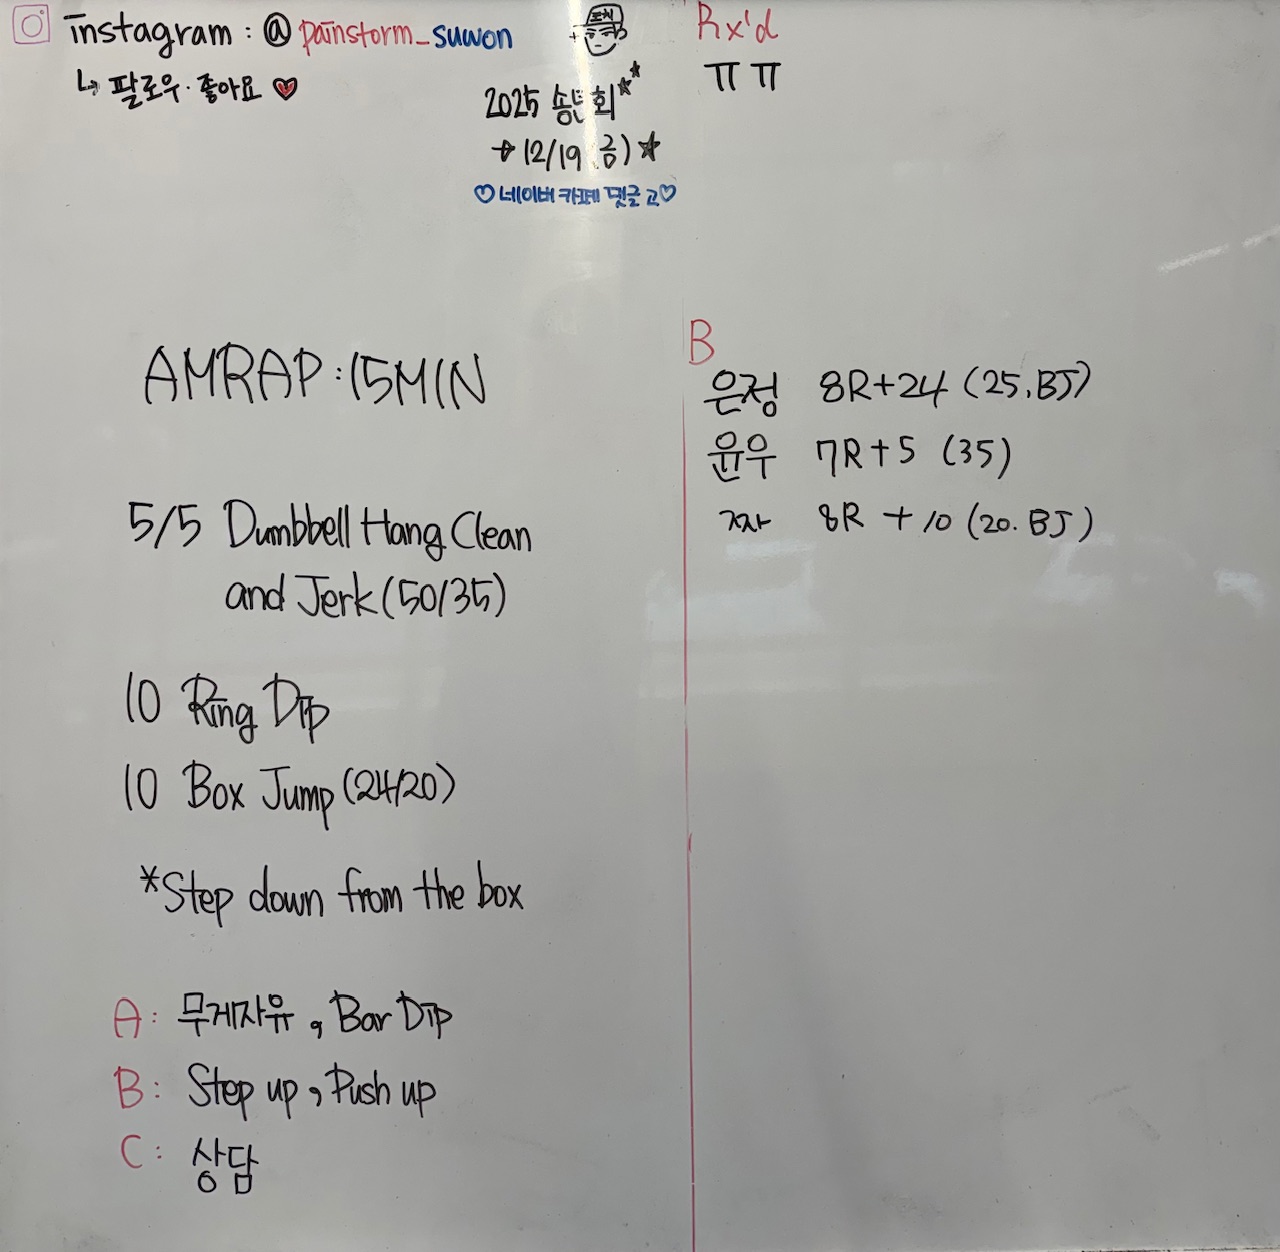 instagram : @ painstorm_suwon
↳ 팔로우·좋아요 ♥
2025 송년회**
→ 12/19 금) ★
♡네이버 카페 댓글 고♡
Rx'd
ㅠㅠ
AMRAP : 15MIN
5/5 Dumbbell Hang Clean
and Jerk (50/35)
10 Ring Dip
10 Box Jump (24/20)
*Step down from the box
A: 무게자유, Bar Dip
B: Step up, Push up
C: 상담
B
은정 8R+24 (25.BJ)
윤우 7R+5 (35)
8R + 10 (20. BJ)